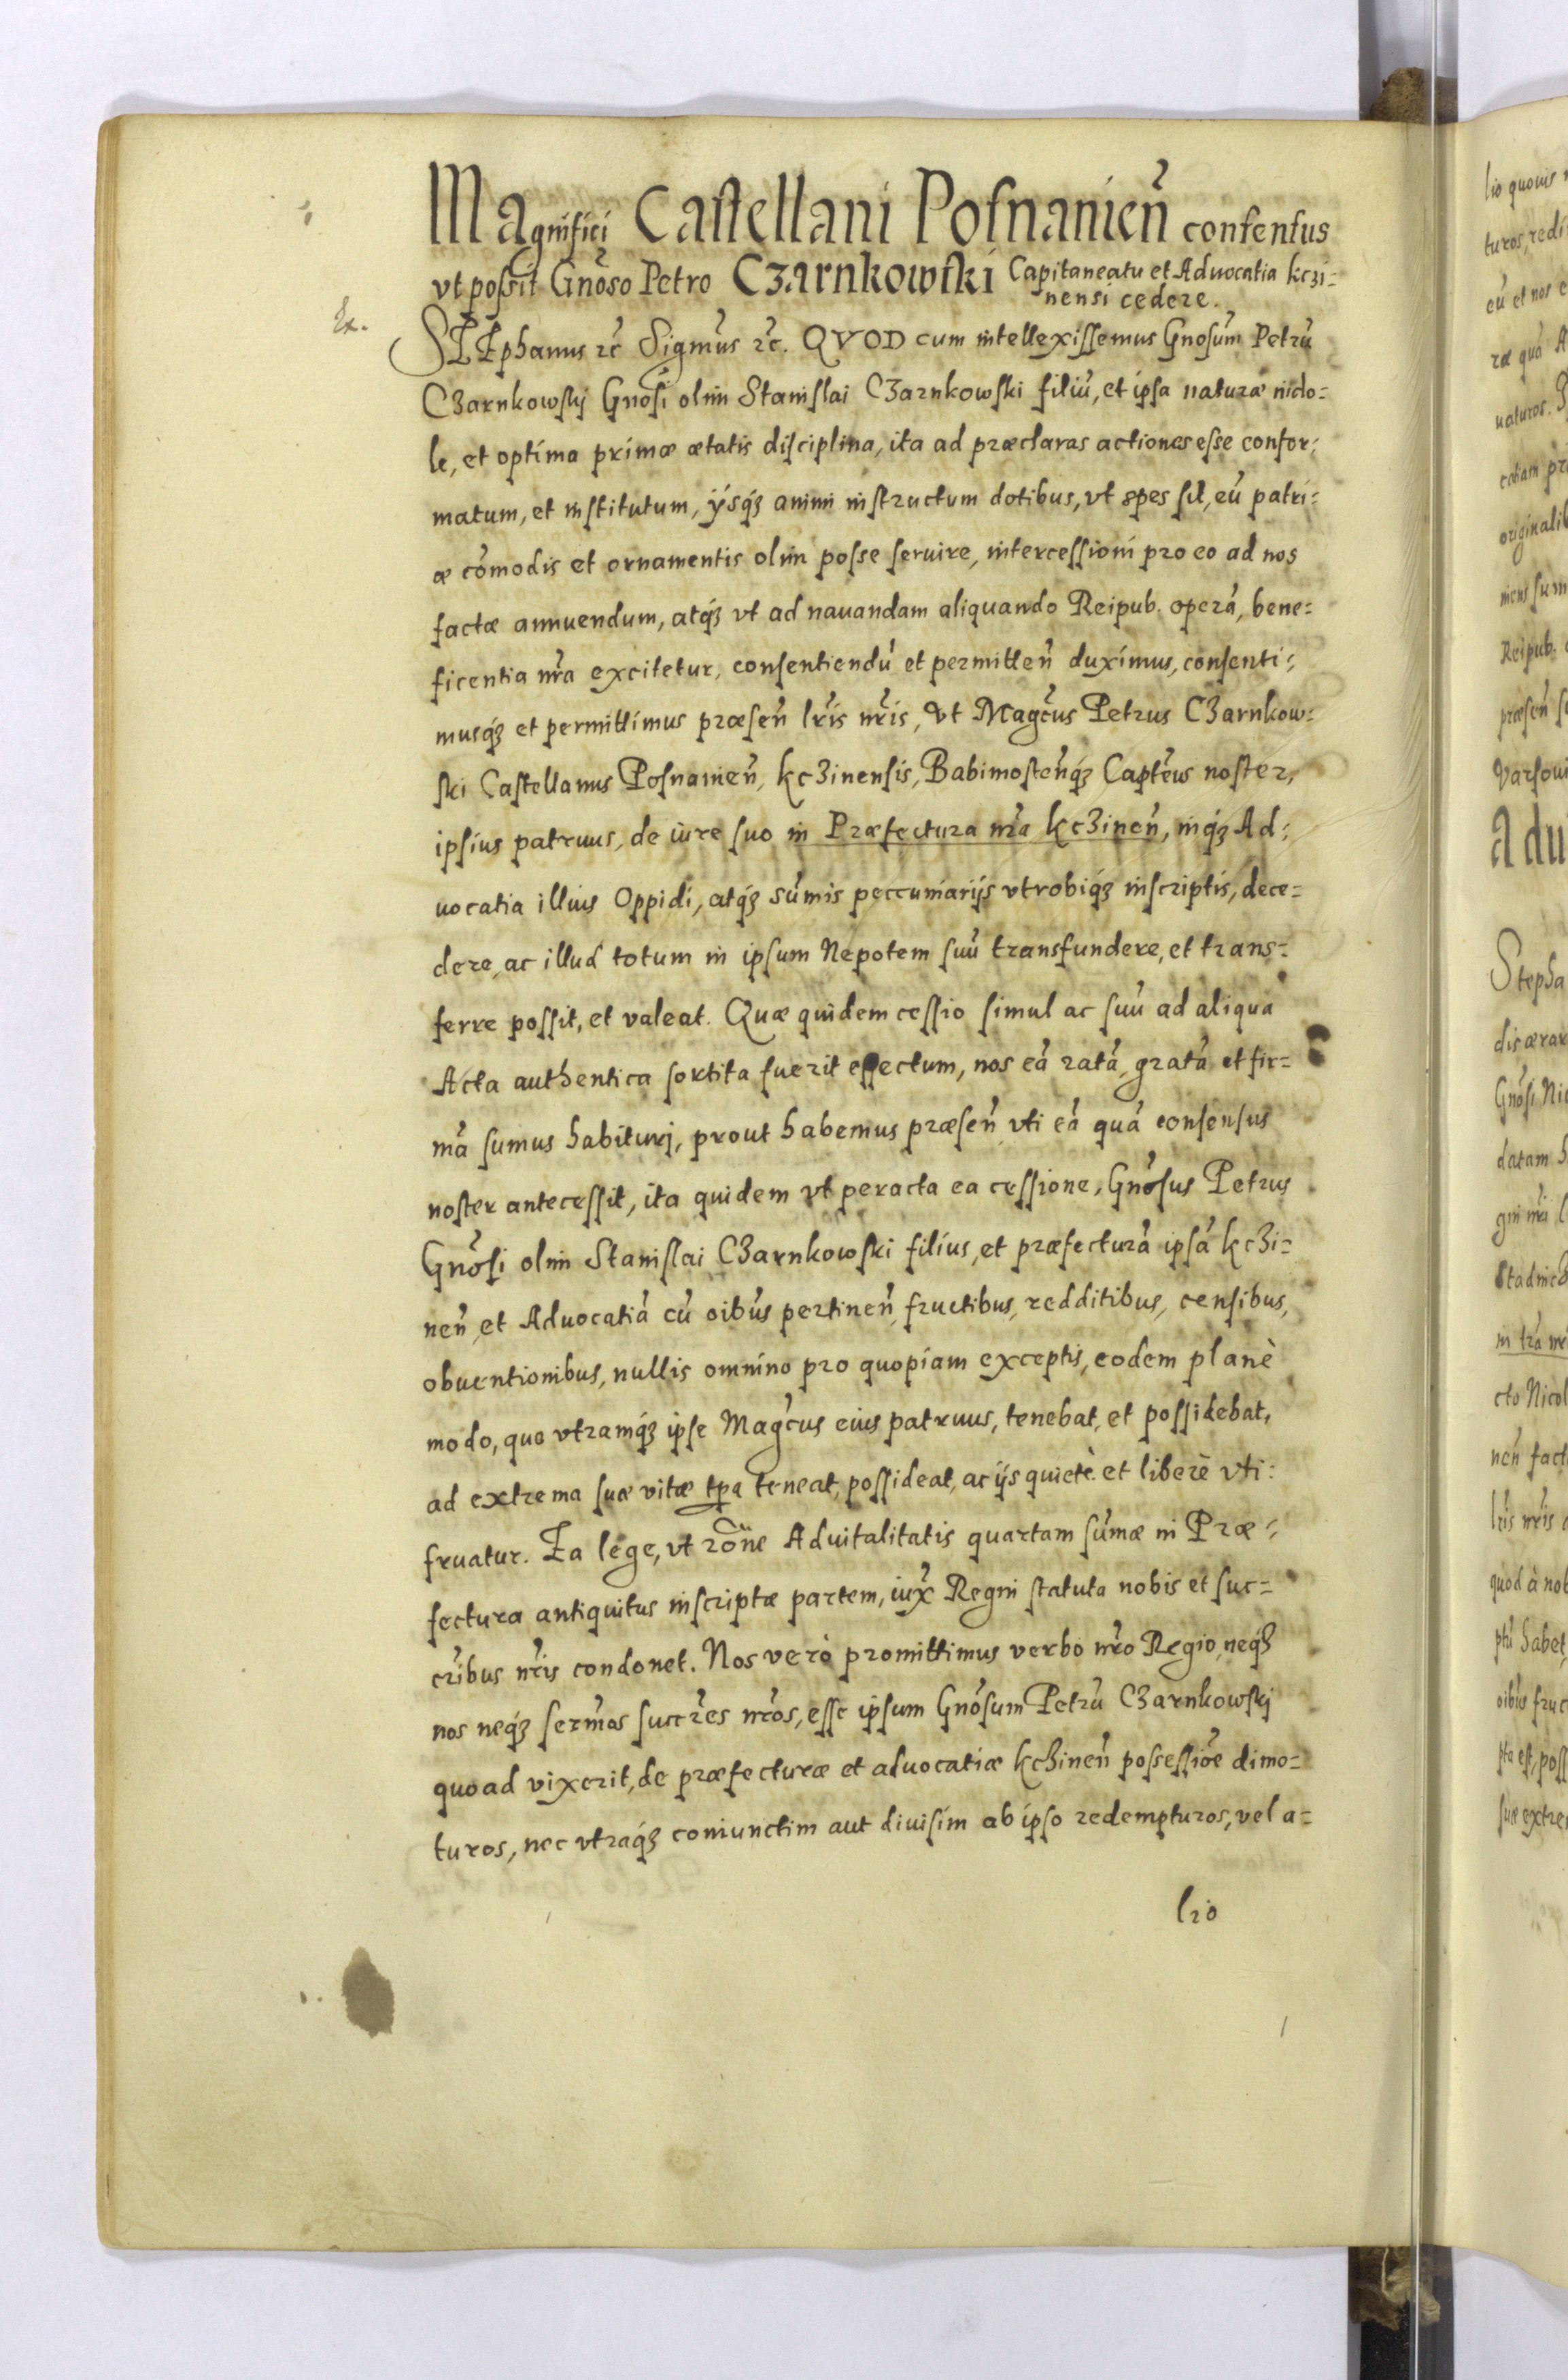 Magnifici Castellani Posnanien̄ consensus
vt possit Gnōso Petro Czarnkowski Capitaneatu et Aduocatia kczi=
nensi cedere.
Ex.
STEphanus &c̄ Sigmūs &c̄. QVOD cum intellexissemus Gnōsum Petrū
Czarnkowskj Gnōsi olim Stanislai Czarnkowski filiū, et ipsa naturæ indo=
le, et optima primæ ætatis disciplina, ita ad præclaras actiones esse confor=
matum, et institutum, ysq́ꝫ animi instructum dotibus, vt spes sit, eū patri=
æ cōmodis et ornamentis olim posse seruire, intercessioni pro eo ad nos
factæ annuendum, atq́ꝫ vt ad nauandam aliquando Reipub. operā, bene=
ficentia nr̄a excitetur, consentiendū et permitten̄ duximus, consenti=
musq́ꝫ et permittimus præsen̄ lr̄is nr̄is, vt Magc̄us Petrus Czarnkow=
ski Castellanus Posnanien̄, kczinensis, Babimosten̄q́ꝫ Captēus noster,
ipsius patruus, de iure suo in Præfectura nr̄a kczinen̄, inq́ꝫ Ad=
uocatia illius Oppidi, atq́ꝫ sūmis peccuniarijs vtrobiq́ꝫ inscriptis, dece=
dere, ac illud totum in ipsum Nepotem suū transfundere, et trans=
ferre possit, et valeat. Quæ quidem cessio simul ac suū ad aliqua
Acta authentica sortita fuerit effectum, nos eā ratā, gratā et fir=
mā sumus habiturj, prout habemus præsen̄ vti eā quā consensus
noster antecessit, ita quidem vt peracta ea cessione, Gnōsus Petrus
Gnōsi olim Stanislai Czarnkowski filius, et præfecturā ipsā kczi=
nen̄, et Aduocatiā cū oibūs pertinen̄, fructibus, redditibus, censibus,
obuentionibus, nullis omnino pro quopiam exceptis, eodem planè
modo, quo vtramq́ꝫ ipse Magc̄us eius patruus, tenebat, et possidebat,
ad extrema suæ vitæ tp̄a teneat, possideat, ac ijs quietè et liberè vti=
fruatur. Ea lege, vt rōne Aduitalitatis quartam sūmæ in Præ=
fectura antiquitus inscriptæ partem, iux̄ Regni statuta nobis et suc=
cr̄ibus nr̄is condonet. Nos verò promittimus verbo nr̄o Regio, neq́ꝫ
nos neq́ꝫ serm̄os succr̄es nr̄os, esse ipsum Gnōsum Petrū Czarnkowskj
quoad vixerit, de præfecturæ et aduocatiæ kczinen̄ possessiōe dimo=
turos, nec vtraq́ꝫ coniunctim aut diuisim ab ipso redempturos, vel a=
lio
lio quouis
turos, redi
eū et nos
ræ quā A
uaturos.
originali
Reipub.
præsen̄
Varsoui
Adu
Stepha
dis ærar
Gnōsi Ni
datam h
in tra
cto Nicol
nen̄ fact
lr̄is nr̄is
quod à nob
ptū habet,
oibūs fruc
pta est, poss
suæ extre